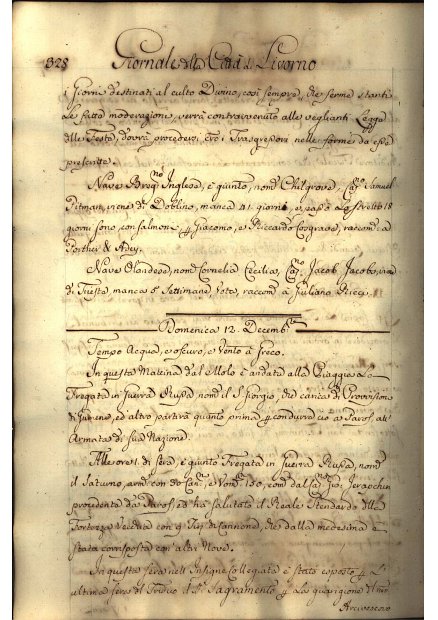 328 Giornale della Città di Livorno
i Giorni destinati al culto Divino, così sempre, che ferme stanti
Le sud.e moderazioni, verrà contravvenuto alle veglianti Legge
delle Feste, dovrà procedersi cro i Trasgressori nelle forme da esse
prescritte.
Nave Breq.no Inglese, è giunto, nom.o Chilgrove, Cap.no Samuel
Pitman, viene di Doblino, manca 41 giorni, e, passò Lo stretto 18
giorni sono, con salmone p Giacomo, e Riccardo Cosgrave, raccom. a
Porther & Adey.
Nave Olandese, nom. Cornelia Cecilia, Cap.no Jacob Jacobs, viene
di Trieste manca 5 Settimane vota, raccom. a Juliano Ricci.
Domenica 12. Decemb.re
Tempo Acqua, e oscuro, e Vento à Greco.
In questa Mattina dal Molo è andata alla Piaggia La
Fregata in guerra Russa, nom. il S. Giorgio, che carica di Provvisioni
di farine, ed altro partirà quanto prima p condurre ciò à Paros all'
Armata di sua Nazione.
Alle ore 1. di sera, è giunto Fregata in guerra Russa, nom.
il Saturno, arm. con 30 Can. e Vom. 130, com. dal Cap.no Gio. Jeracchin
procedente da Paros, ed ha salutato il Reale Stendardo della
Fortezza Vecchia con 9 Tiri di cannone, che dalla medesima è
stata corrisposta con altri Nove.
In questa sera nell'Insigne Collegiata è stato esposto p L'
ultima sera il Triduo del SS. Sagramento p La guarigione del nro
Arcivescovo